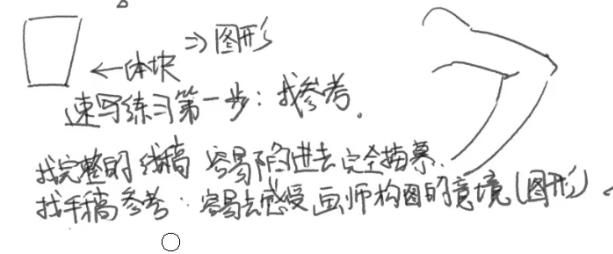 ⇒图形
←体块
速写练习第一步：找参考。
找完整的线稿 容易陷进去完全描摹.
找手稿参考：容易去感受画师构图的意境(图形)。